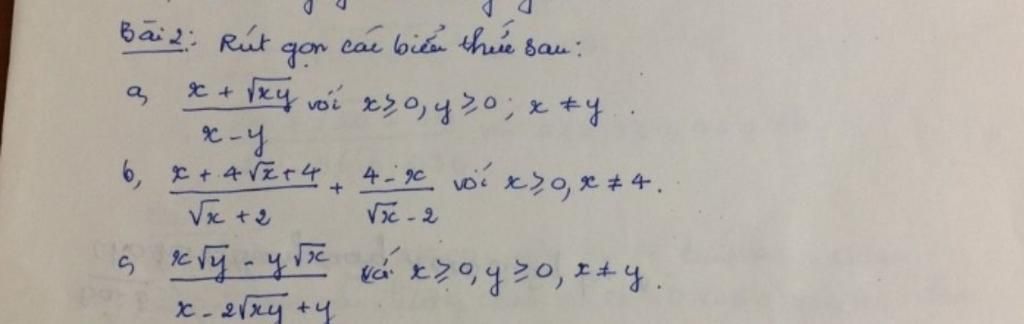 Bài 2: Rút gọn các biểu thức sau:
a, (x + √xy)/(x - y) với x ≥ 0, y ≥ 0; x ≠ y.
b, (x + 4√x + 4)/(√x + 2) + (4 - x)/(√x - 2) với x ≥ 0, x ≠ 4.
c, (x√y - y√x)/(x - 2√xy + y) với x ≥ 0, y ≥ 0, x ≠ y.